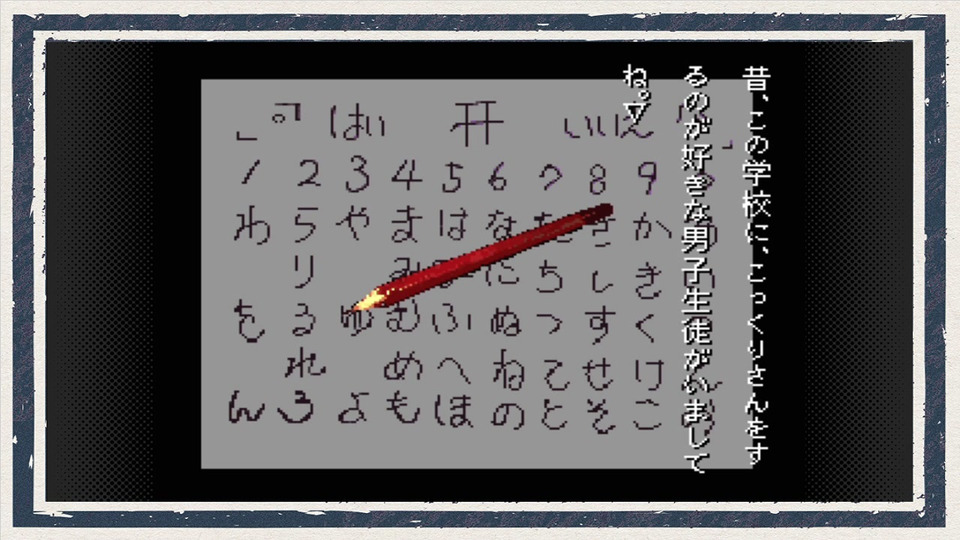 昔、この学校に、こっくりさんをす
るのが好きな男子生徒がいまして
ね。▽
」 °「 はい 开 いいえ
1 2 3 4 5 6 7 8 9
わ ら や ま は な た さ か
り み に ち し き
を る ゆ む ふ ぬ つ す く
れ め へ ね て せ け
ん ろ よ も ほ の と そ こ